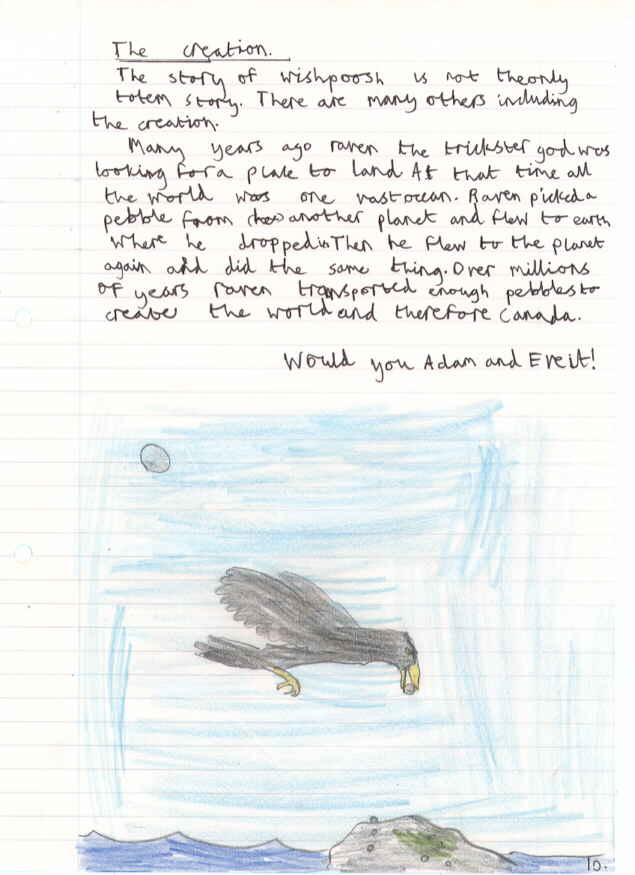 The creation.
The story of wishpoosh is not theonly
totem story. There are many others including
the creation.
Many years ago raven the trickster god was
looking for a place to land At that time all
the world was one vast ocean. Raven picked a
pebble from another planet and flew to earth
where he droppedin Then he flew to the planet
again and did the same thing. Over millions
of years raven transported enough pebbles to
create the world and therefore Canada.
Would you Adam and Eve it!
10.